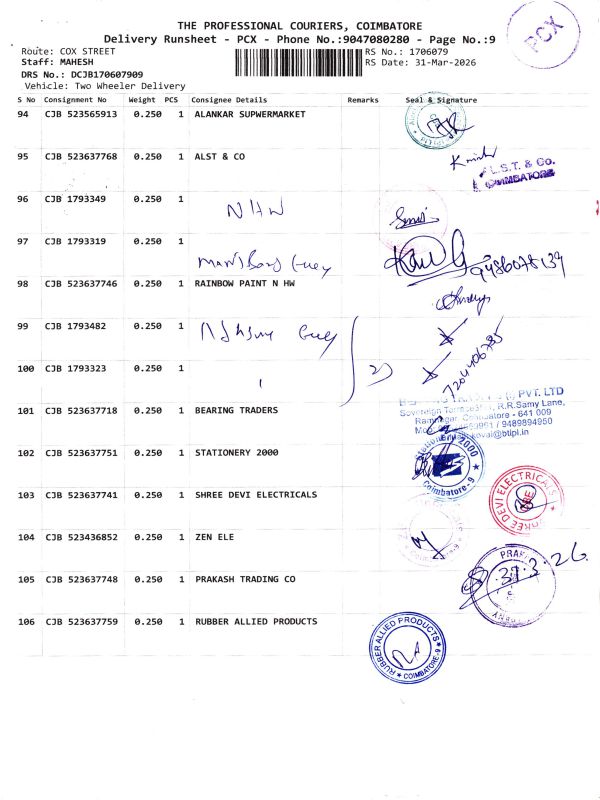 THE PROFESSIONAL COURIERS, COIMBATORE
Delivery Runsheet - PCX - Phone No.:9047080280 - Page No.:9
PCX
Route: COX STREET
RS No.: 1706079
Staff: MAHESH
RS Date: 31-Mar-2026
DRS No.: DCJB170607909
Vehicle: Two Wheeler Delivery
S No Consignment No Weight PCS Consignee Details Remarks Seal & Signature
94 CJB 523565913 0.250 1 ALANKAR SUPWERMARKET
95 CJB 523637768 0.250 1 ALST & CO
L.S.T. & Co.
COIMBATORE
96 CJB 1793349 0.250 1
NHW
97 CJB 1793319 0.250 1
9486078139
98 CJB 523637746 0.250 1 RAINBOW PAINT N HW
99 CJB 1793482 0.250 1
100 CJB 1793323 0.250 1
7204406735
101 CJB 523637718 0.250 1 BEARING TRADERS
PVT. LTD
R.R.Samy Lane,
Ramnagar, Coimbatore - 641 009
/ 9489894950
102 CJB 523637751 0.250 1 STATIONERY 2000
Stationery 2000
Coimbatore-9
103 CJB 523637741 0.250 1 SHREE DEVI ELECTRICALS
SHREE DEVI ELECTRICALS
104 CJB 523436852 0.250 1 ZEN ELE
105 CJB 523637748 0.250 1 PRAKASH TRADING CO
31.3.26
106 CJB 523637759 0.250 1 RUBBER ALLIED PRODUCTS
RUBBER ALLIED PRODUCTS
COIMBATORE-9